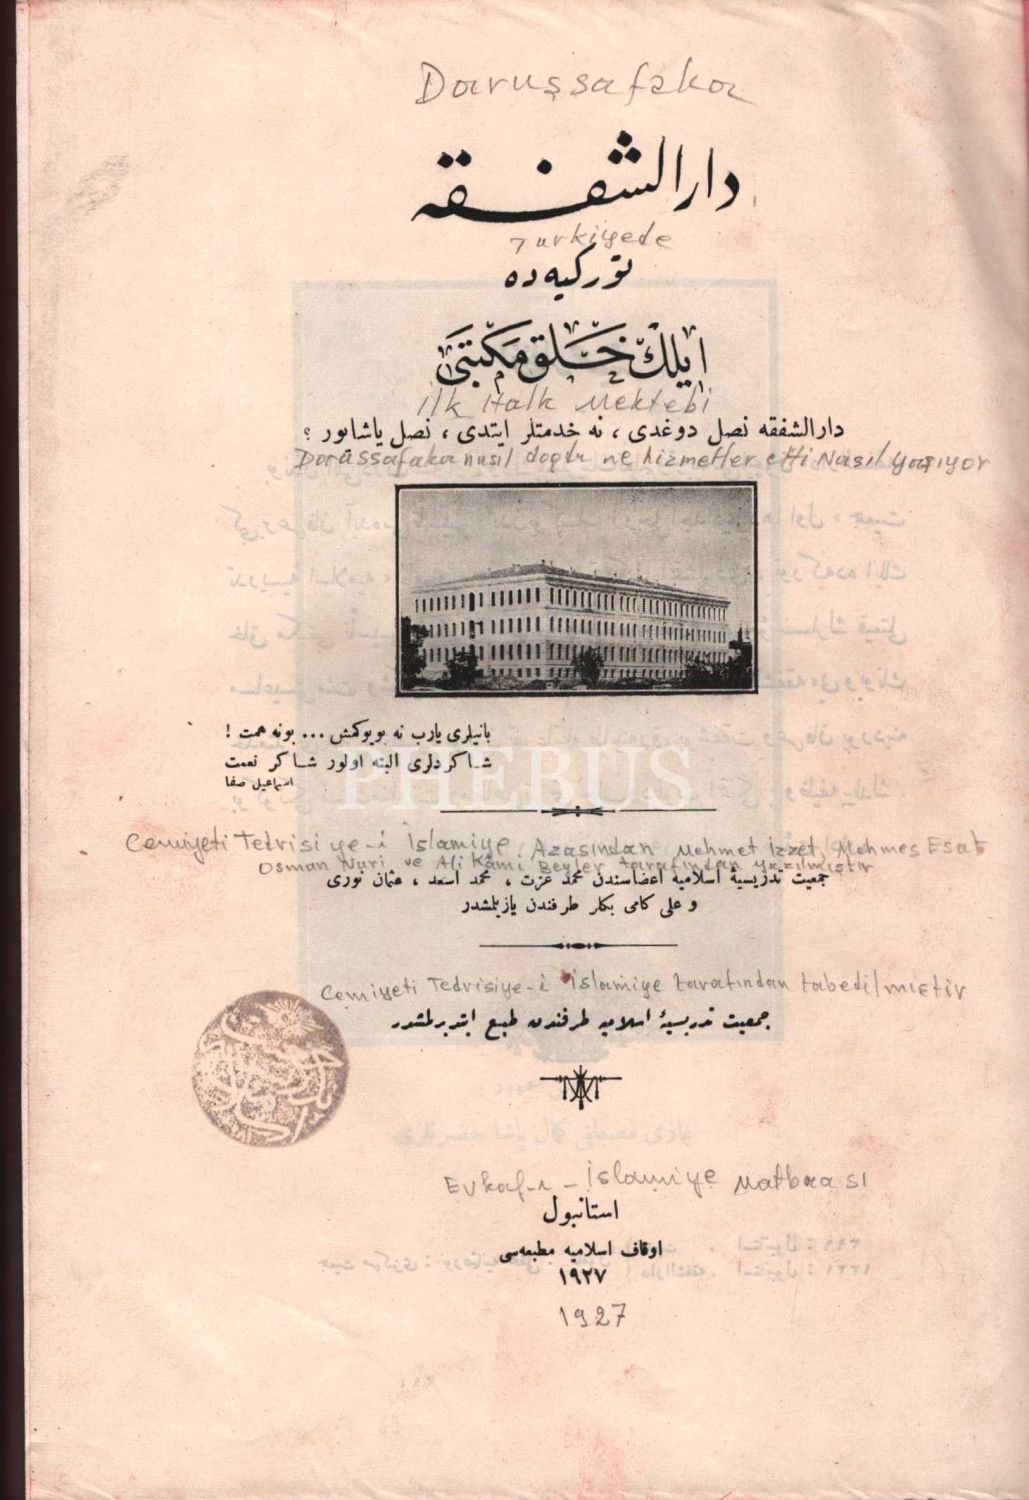 Daruşşafaka
دار الشفقه
Türkiyede
توركیه ده
ایلك خلق مكتبی
ilk Halk Mektebi
دار الشفقه نصل دوغدی ، نه خدمتلر ایتدی ، نصل یاشایور ؟
Darüssafaka nasıl dogdu ne hizmetler etti Nasıl yaşıyor
بانیلری یارب نه بویوكمش ... بونه همت !
شاكردلری البته اولور شاكر نعمت
اسماعیل صفا
PHEBUS
Cemiyeti Tedrisiye-i İslamiye Azasından Mehmet İzzet, Mehmes Esat
Osman Nuri ve Ali Kâmi Beyler tarafından yazılmıştır
جمعیت تدریسیهٔ اسلامیه اعضاسندن محمد عزت ، محمد اسعد ، عثمان نوری
و علی كامی بكلر طرفندن یازیلمشدر
Cemiyeti Tedrisiye-i İslamiye tarafından tabedilmiştir
جمعیت تدریسیهٔ اسلامیه طرفندن طبع ایتدیرلمشدر
Evkaf-ı - İslamiye Matbaası
استانبول
اوقاف اسلامیه مطبعه‌سی
۱۹۲۷
1927